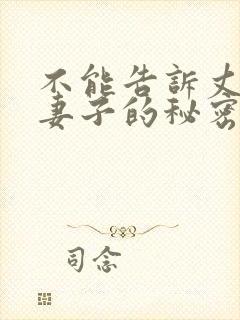 不能告訴丈
妻子的秘密
司念